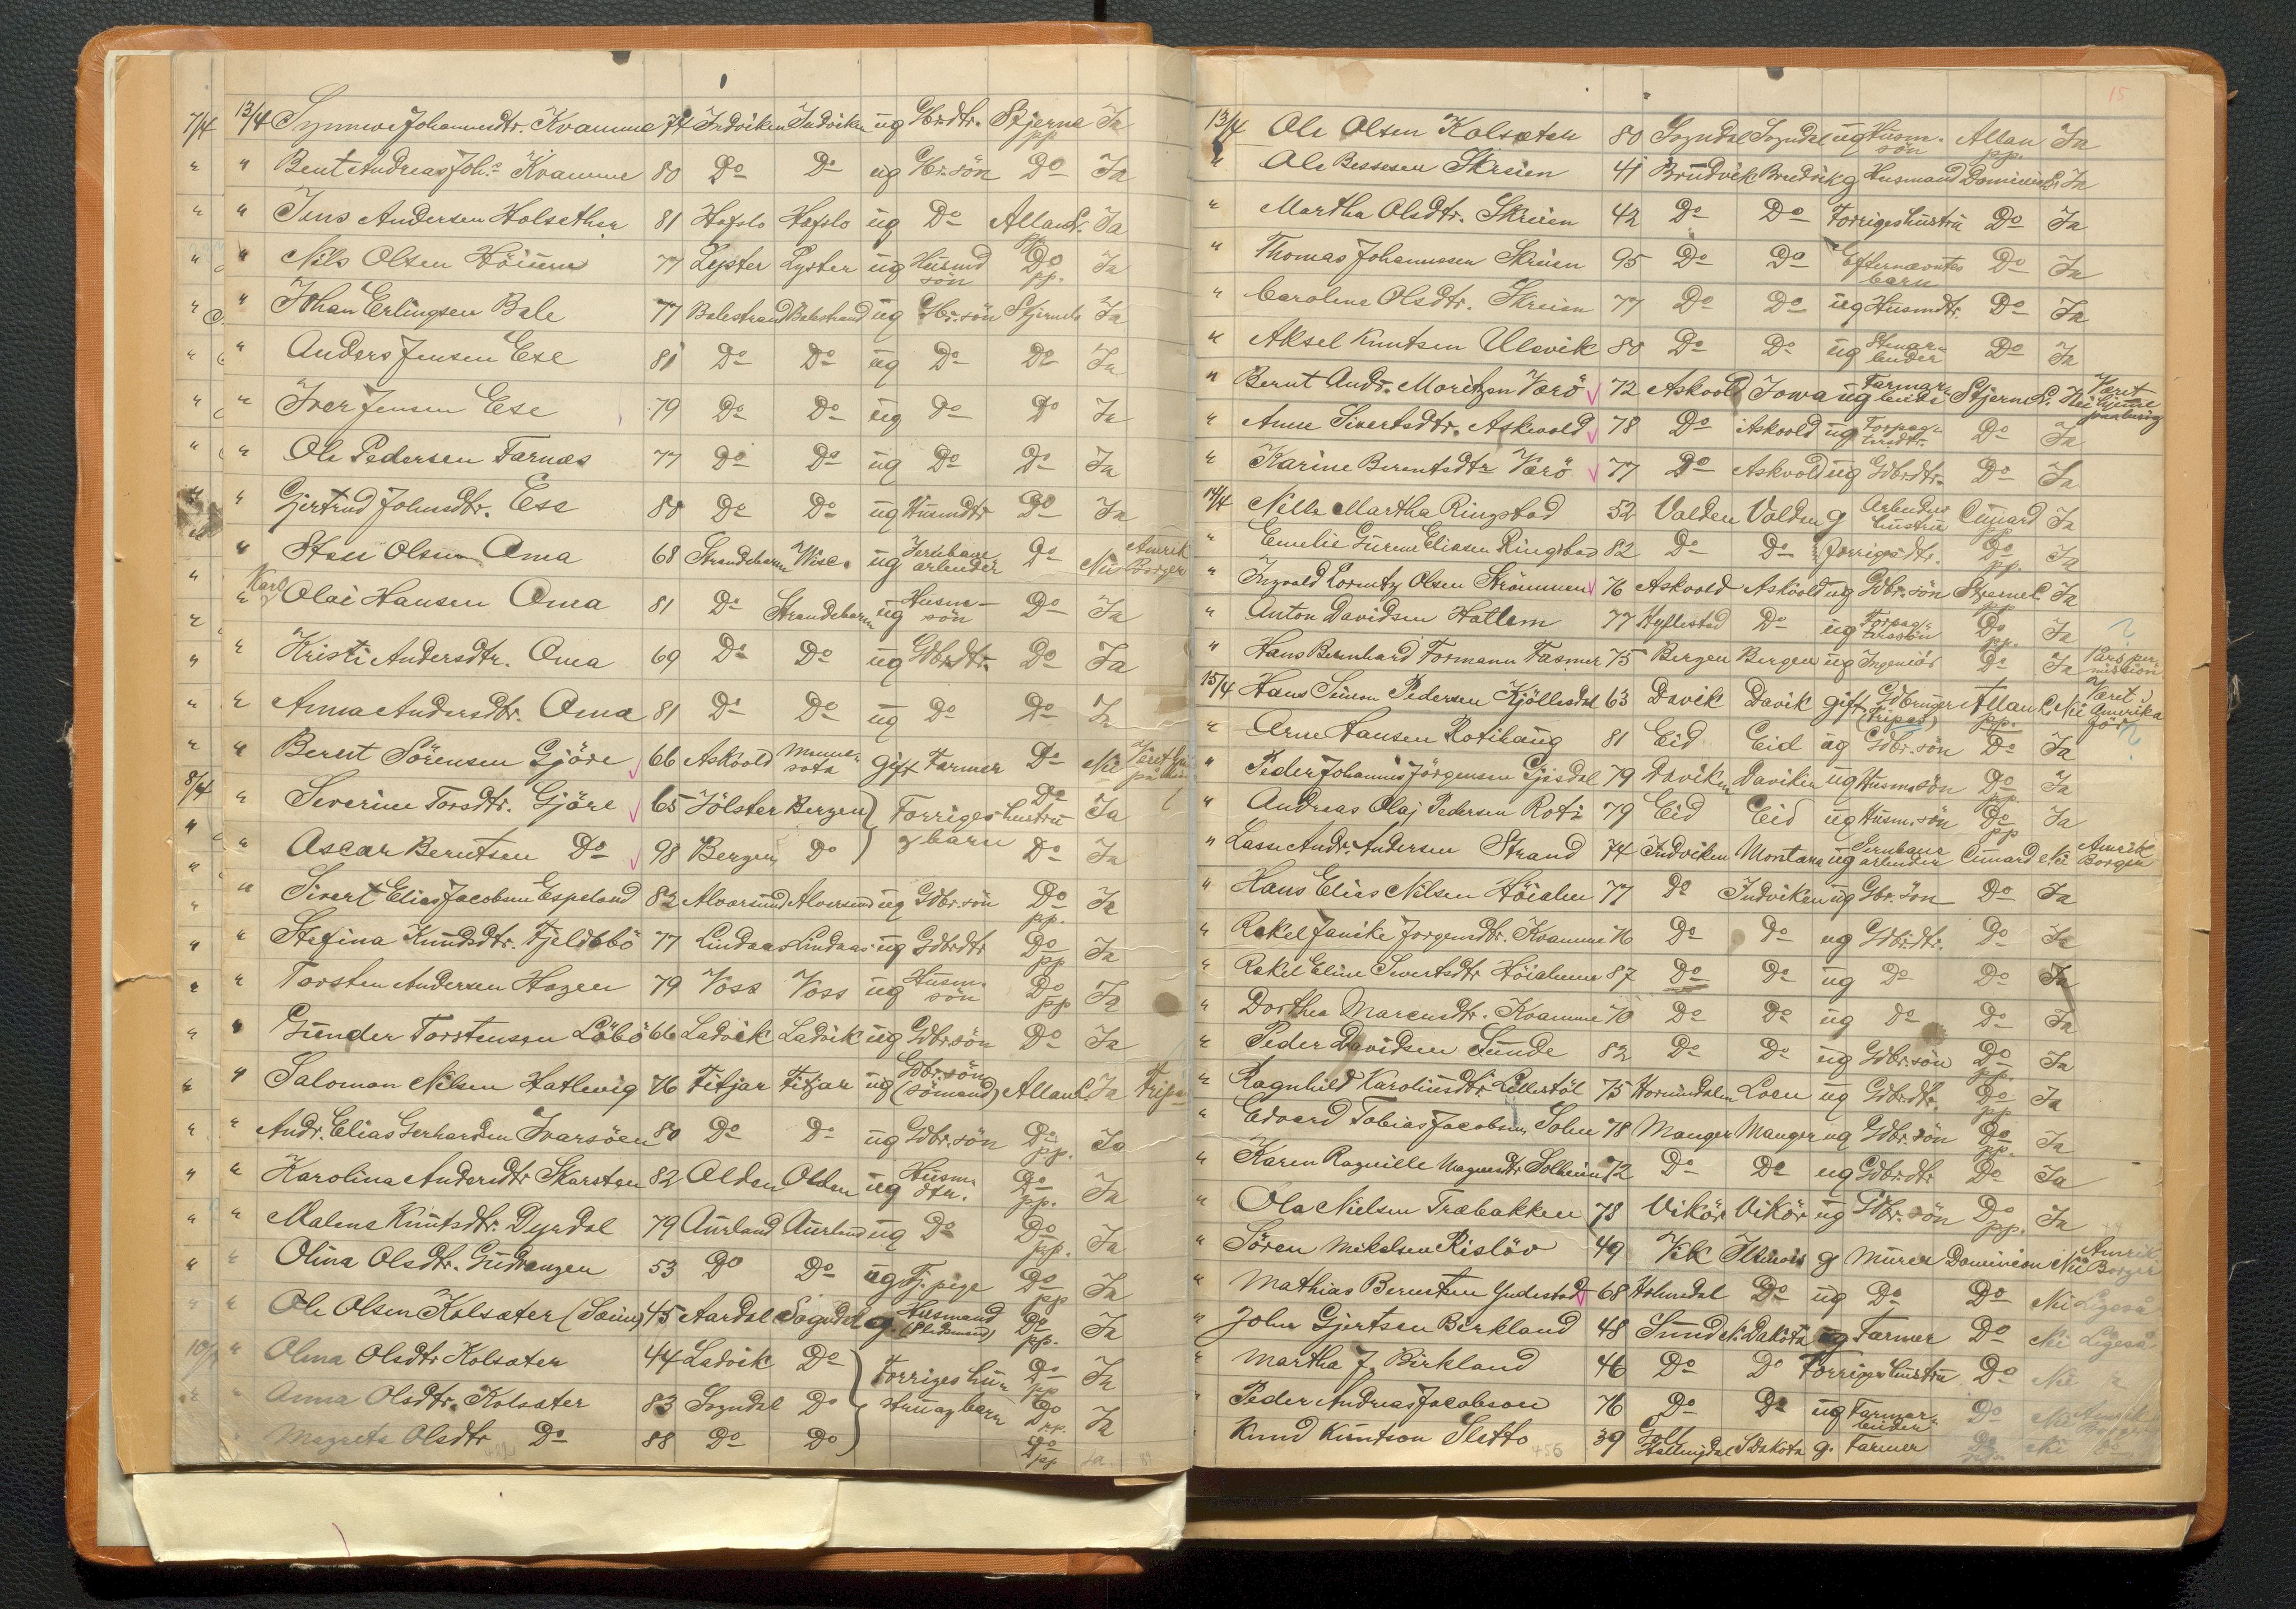 7/4 13/4 Synneve Johannesdtr. Kvamme 74 Indviken Indviken ug Gbr.dtr. Stjerne pp Ja
" " Bent Andreas Joh.s Kvamme 80 Do Do ug Gbr. sön Do Ja
" " Jens Andersen Holsether 81 Hafslo Hafslo ug Do Allan L. pp Ja
" " Nils Olsen Höium 77 Lyster Lyster ug Husmd sön Do pp. Ja
" " Johan Erlingsen Bale 77 Balestrand Balestrand ug Gbr. sön Stjernel. Ja
" " Anders Jensen Ese 81 Do Do ug Do Do Ja
" " Iver Jensen Ese 79 Do Do ug Do Do Ja
" " Ole Pedersen Farnæs 77 Do Do ug Do Do Ja
" " Gjertrud Johnsdtr. Ese 80 Do Do ug Husmdtr Do Ja
" " Olsen Oma 68 Strandebarm Wisc. ug Jernbane arbeider Do Nei Amrik Borger
" " Karl Olai Hansen Oma 81 Do Strandebarm ug Husm- sön Do Ja
" " Kristi Andersdtr. Oma 69 Do Do ug Gdbrdtr. Do Ja
" " Anna Andersdtr. Oma 81 Do Do ug Do Do Ja
" " Bernt Sörensen Gjöre 66 Askvold Minne- sota gift Farmer Do Nei
8/4 " Severine Torsdtr. Gjöre 65 Jölster Bergen Forriges hustru Do Ja
" " Ascar Berntsen Do 98 Bergen Do & barn Do Ja
" " Sivert Elias Jacobsen Espeland 82 Alversund Alversund ug Gdbr. sön Do pp. Ja
" " Stefina Knudsdtr. Fjeldsbö 77 Lindaas Lindaas ug Gdbrdtr Do pp Ja
" " Torsten Andersen Hagen 79 Voss Voss ug Husm. sön Do pp Ja
" " Gunder Torstensen Löbö 66 Ladvik Ladvik ug Gdbr. sön Do Ja
" " Salomon Nilsen Hatlevig 76 Fitjar Fitjar ug Gdbr. sön (sömand) Allan L. Ja Tripas
" " Andr. Elias Gerhardsen Ivarsöen 80 Do Do ug Gdbr. sön Do pp. Ja
" " Karolina Andersdtr Skarsten 82 Olden Olden ug Husm. dtr. Do pp. Ja
" " Malene Knutsdtr. Dyrdal 79 Aurland Aurland ug Do Do pp. Ja
" " Olina Olsdtr. Gudvangen 53 Do Do ug Tj. pige Do pp Ja
" " Ole Olsen Kolsæter 45 Aardal Sogndal g. Husmand Do pp. Ja
10/4 " Olina Olsdtr Kolsæter 44 Ladvik Do Forriges hu- Do pp Ja
" " Anna Olsdtr. Kolsæter 83 Sogndal Do stru og barn Do pp. Ja
" Magreta Olsdtr Do 88 Do Do Do pp Ja
15
13/4 Ole Olsen Kolsæter 80 Sogndal Sogndal ug Husm. sön Allan pp. Ja
" Ole Bessesen Skreien 41 Brudvik Brudvik g Husmand Dominion L. Ja
" Martha Olsdtr. Skreien 42 Do Do Forriges hustru Do Ja
" Thomas Johannesen Skreien 95 Do Do Efternævntes barn Do Ja
" Caroline Olsdtr. Skreien 77 Do Do ug Husmdtr. Do Ja
" Aksel Knutsen Ulevik 80 Do Do ug Stenar- beider Do Ja
" Bernt Andr. Moritzen Værö 72 Askvold Iowa ug Farmar- beide Stjernel. Nei Været hjeme
" Anne Sivertsdtr. Askvold 78 Do Askvold ug Forpag- tersdtr. Do Ja
" Karine Berentsdtr Værö 77 Do Askvold ug Gdbrdtr. Do Ja
14/4 Nelle Martha Ringstad 52 Volden Volden g Arbeider hustru Cunard pp Ja
" Emelie Gurene Eliasen Ringstad 82 Do Do Forriges dtr. Do pp. Ja
" Ingvald Lorentz Olsen Strömmen 76 Askvold Askvold ug Gdbr. sön Stjernel. Ja
" Anton Davidsen Hatlem 77 Hyllestad Do ug Forpag- tersön Do pp. Ja
" Hans Bernhard Formann Fasmer 75 Bergen Bergen ug Ingeniör Do Ja Pars per- mission
15/4 Hans Simon Pedersen Kjöllesdal 63 Davik Davik gift Gdbruger (Tripas) Allan L. pp. Nei Været i Amerika för
" Arne Hansen Rotihaug 81 Eid Eid ug Gdbr. sön Do Ja
" Peder Johannes Jörgensen Gjesdal 79 Daviken Daviken ug Husm. sön Do pp. Ja
" Andreas Olaj Pedersen Roti 79 Eid Eid ug Husm. sön Do pp Ja
" Lasse Andr. Andersen Strand 74 Indviken Montana ug Jernbane arbeider Cunard Nei Amrik Borger
" Hans Elias Nilsen Höialm 77 Do Indviken ug Gbr. sön Do Ja
" Rakel Janike Jörgensdtr. Kvamme 76 Do Do ug Gdbrdtr. Do Ja
" Rakel Eline Sivertsdtr Höialmen 87 Do Do ug Do Do Ja
" Dorthea Marcusdtr. Kvamme 70 Do Do ug Do Do Ja
" Peder Davidsen Sunde 82 Do Do ug Gdbr. sön Do pp. Ja
" Ragnhild Karoliusdtr. Lillestöl 75 Hornindalen Loen ug Gdbrdtr. Do pp Ja
" Edvard Tobias Jacobsen Solem 78 Manger Manger ug Gdbr. sön Do pp. Ja
" Karen Ragnille Magnesdtr Solheim 72 Do Do ug Gdbrdtr Do Ja
" Ola Nielsen Træbakken 78 Vikör Vikör ug Gdbr. sön Do pp. Ja
" Sören Mikalsen Rislöv 49 Vik Illinois g Murer Dominion Nei Amrik Borger
" Mathias Berntsen Yndestad 68 Holmedal Do ug Do Do Nei Ligesaa
" John Gjertsen Birkland 48 Sund N. Dakota g Farmer Do Nei Ligesaa
" Martha J. Birkland 46 Do Do Forriges hustru Do Nei "
" Peder Andreas Jacobson 76 Do Do ug Farmar- beider Do Nei Amrik Borger
" Knud Knutson Sletto 39 Goll Hallingdal S Dakota g. Farmer Do Nei
456